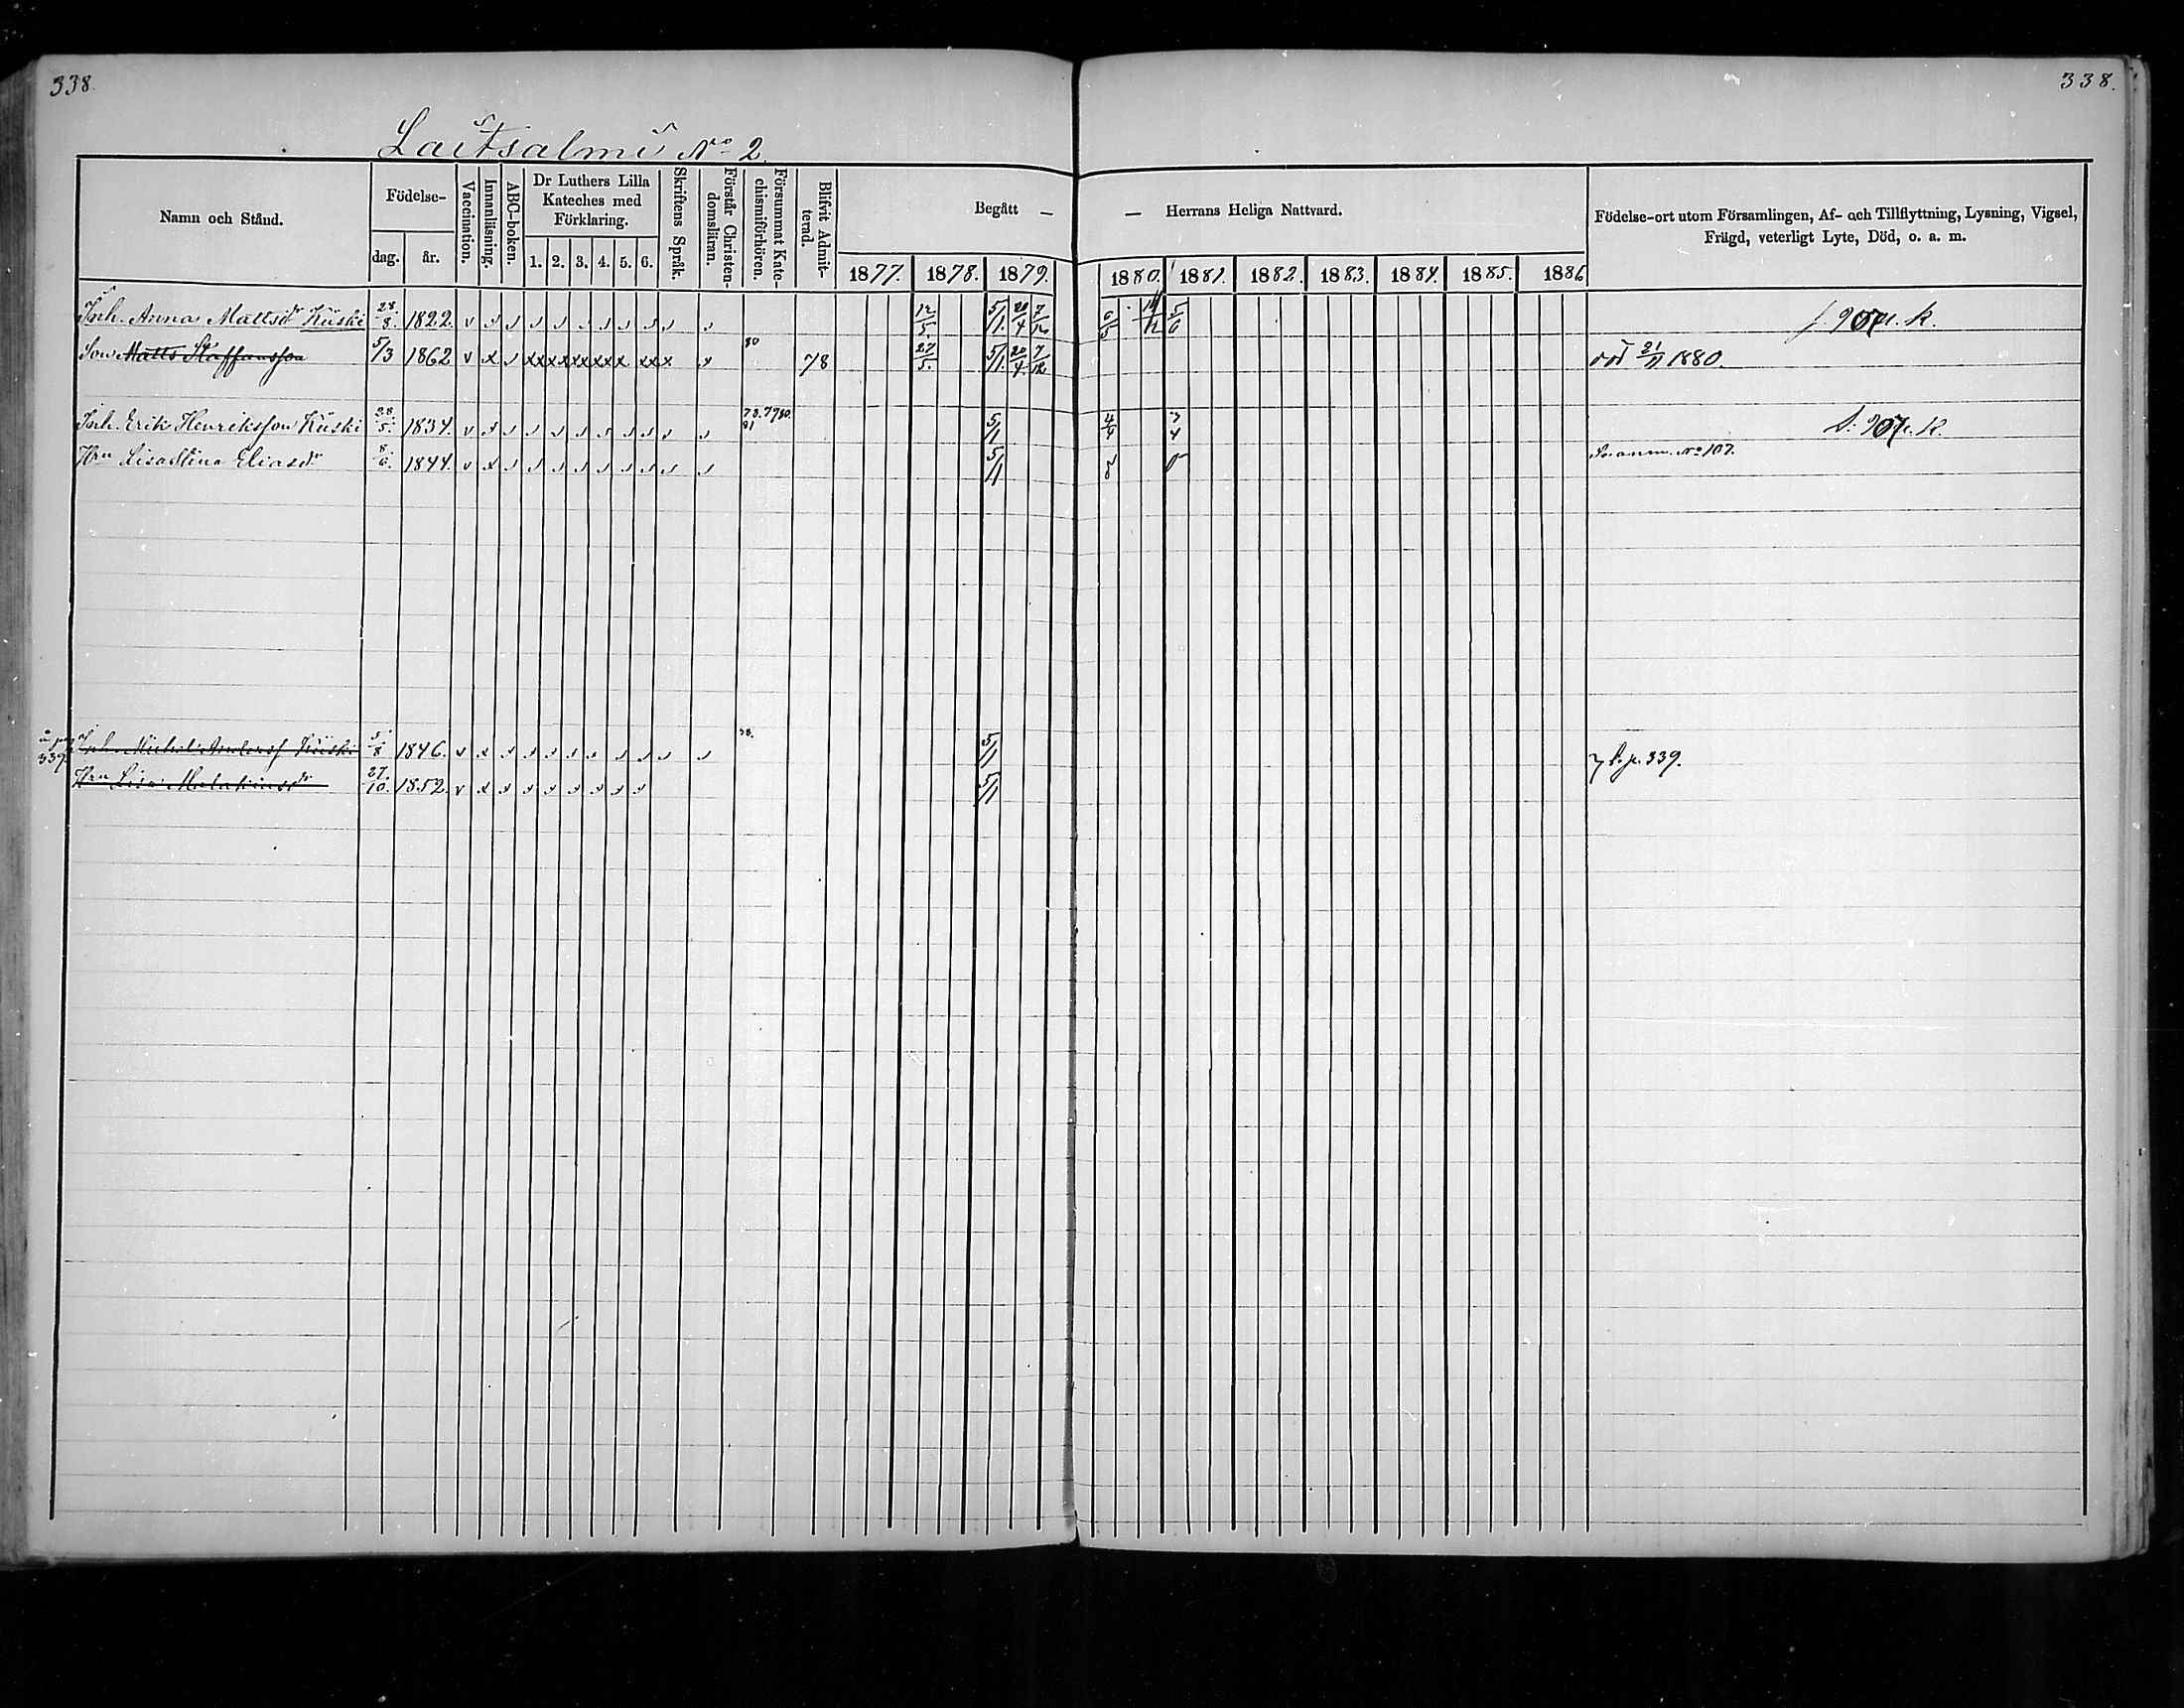 338.
338.
Laitsalmi No 2.
Namn och Stånd.
Födelse-
dag.
år.
Vaccination.
Innanläsning.
ABC-boken.
Dr Luthers Lilla
Kateches med
Förklaring.
1. 2. 3. 4. 5. 6.
Skriftens Språk.
Förstår Christen-
domsläran.
Försummat Kate-
chismiförhören.
Blifvit Admit-
terad.
Begått —
— Herrans Heliga Nattvard.
1877. 1878. 1879. 1880. 1881. 1882. 1883. 1884. 1885. 1886
Födelse-ort utom Församlingen, Af- och Tillflyttning, Lysning, Vigsel,
Frägd, veterligt Lyte, Död, o. a. m.
Inh. Anna Mattsdr Kiiski 28/8. 1822. 12/5. 5/1. 20/4 7/12 6/5 5/6
Son Matts Staffansson 5/3 1862 80 78 27/5. 5/1. 20/4. 7/12 död 21/11 1880.
Inh. Erik Henriksson Kiiski 28/5. 1834. 78. 79 80. 81 5/1 4/4 3/4
Hru Lisa Stina Eliasdr 8/6. 1844. 5/1 Se anm. No 107.
339 Inh. Michel Andersf Kiiski 5/8 1846. 5/1 l. p. 339.
Hru Lisa Malakiasdr 27/10. 1852. 5/1